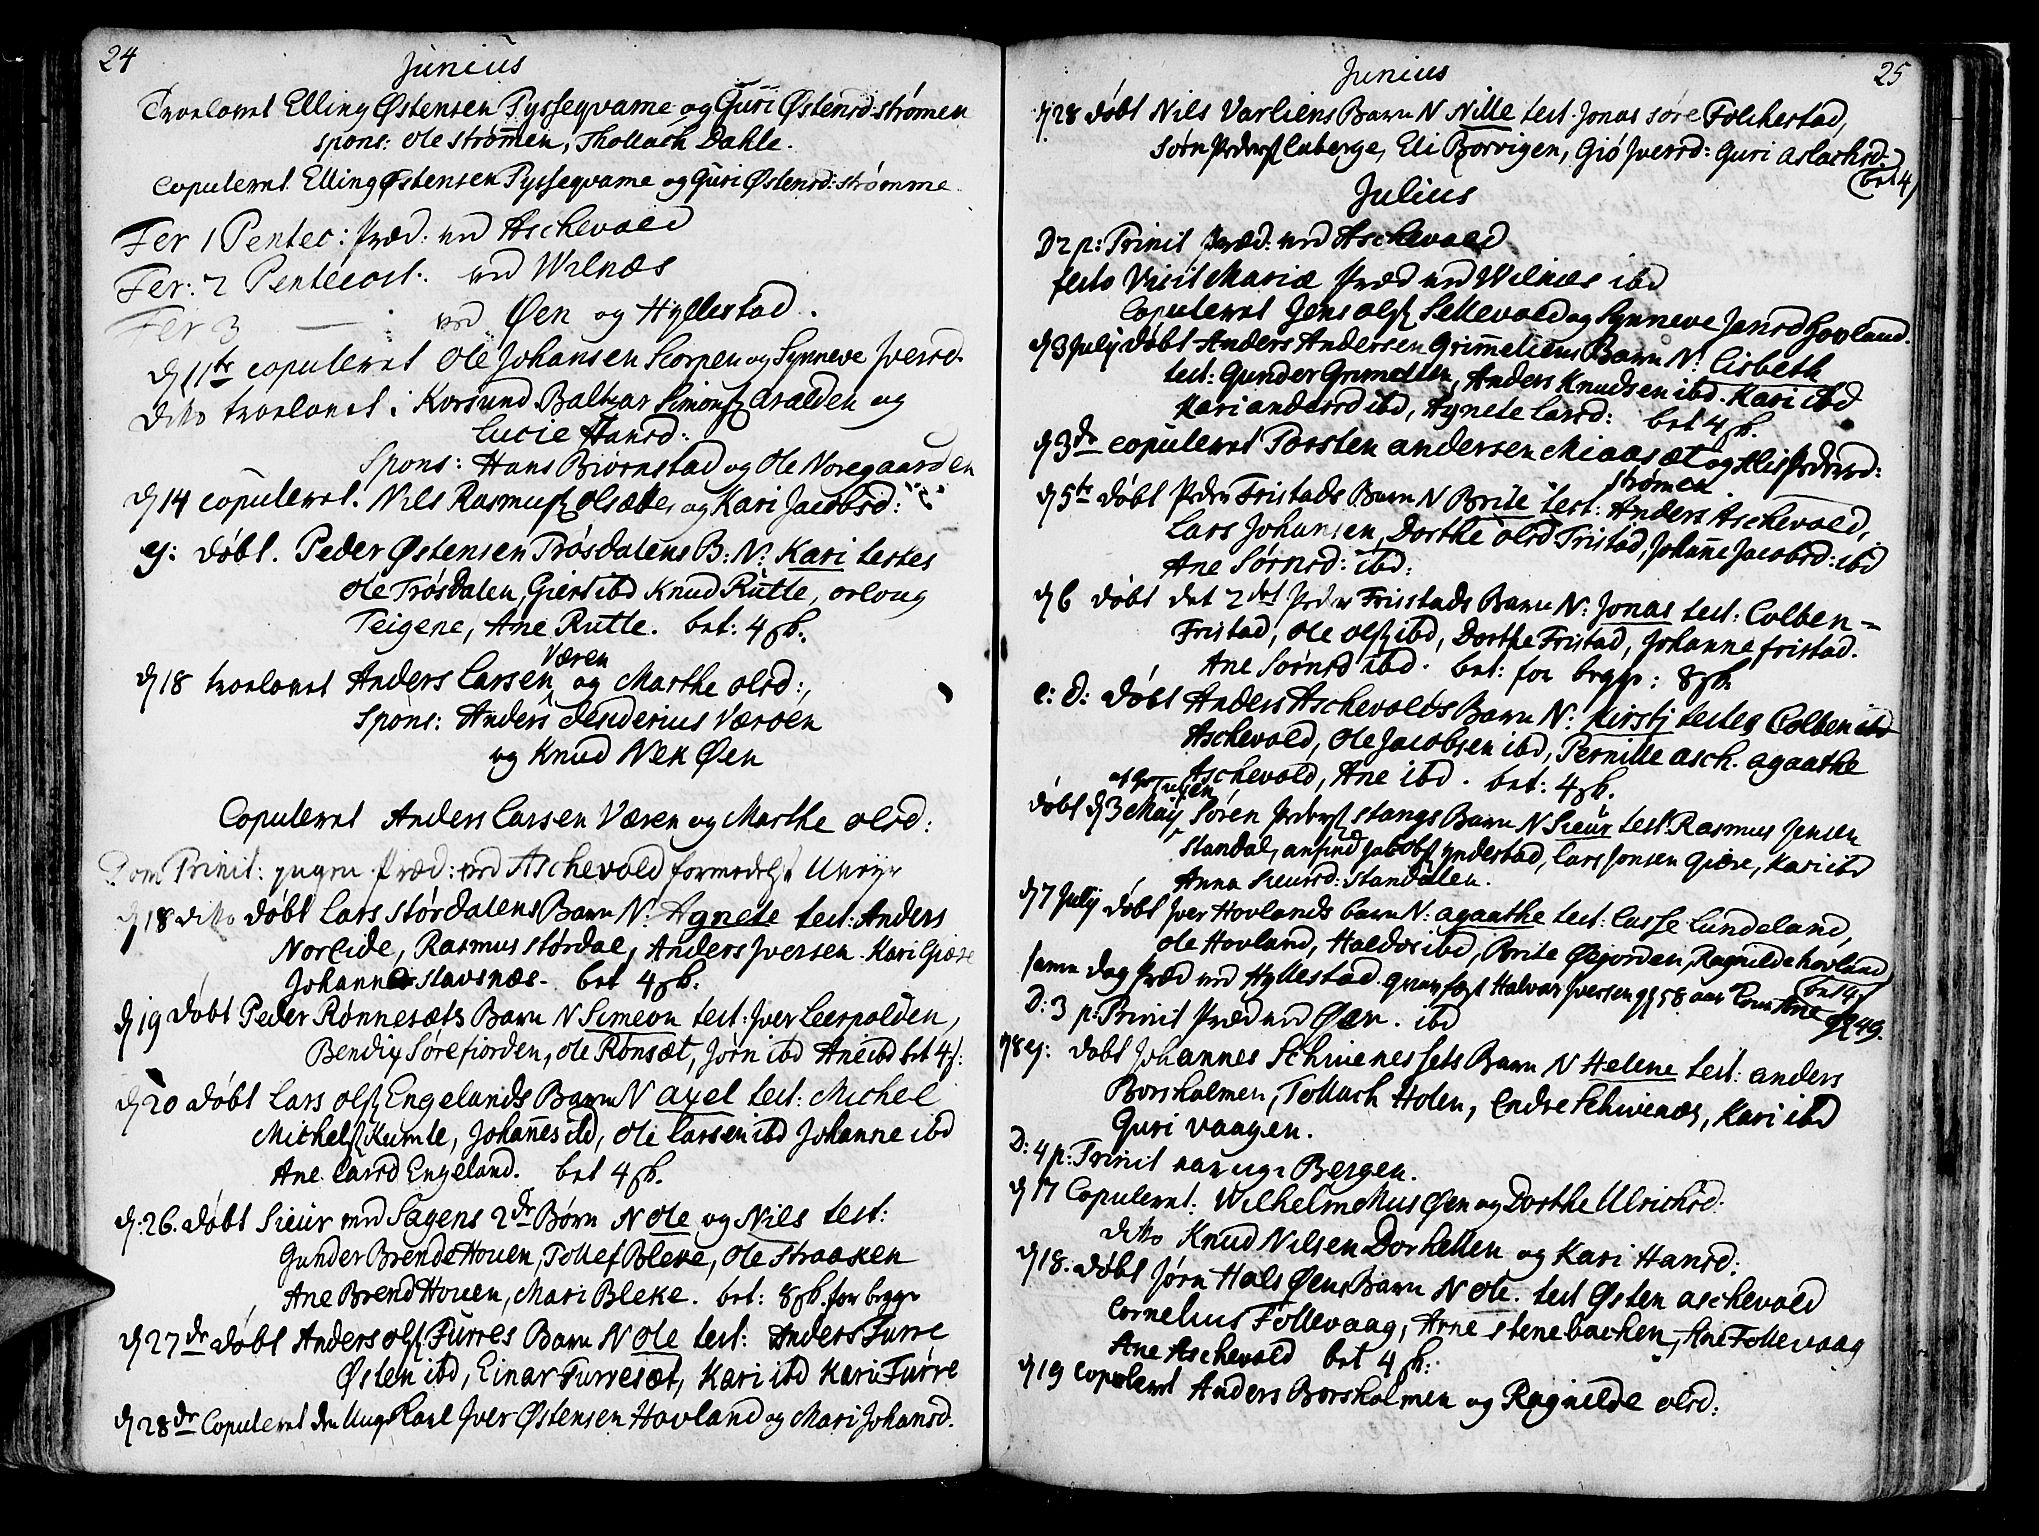 24
Junius
Troelovet Elling Østensen Tysseqvame og Guri Østensd: strømen
spons: Ole strømen, Thollach Dahle.
Copuleret Elling Østensen Tysseqvame og Guri Østensd: strømme
Fer 1 Pentec: Præd: ved Aschevold
Fer: 2 Pentecost. ved Wilnæs
Fer 3 — ved Øen og Hyllestad.
d 11te copuleret Ole Johansen Scorpen og Synneve Jversd.
ditto troelovet i Korsund Baltzar Simons Aralden og
Lucie Hansd:
Spons: Hans Biørnstad og Ole Noregaarden
d 14 copuleret. Nils Rasmus Olsætte og Kari Jacobsd:
ej: døbt. Peder Østensen Trósdalens B: N: Kari testes
Ole Trósdalen, Giert ibd Knud Rutle, orloug
Teigene, Ane Rutle. bet: 4 sk.
d 18 troelovet Anders Larsen Væren og Marthe olsd:,
Spons: Anders desiderius Værøen
og Knud Nek Øen
Copuleret Anders Larsen Væren og Marthe olsd:
Dom Trinit: ingen Præd: ved Aschevold formedelst Uveyr
d 18 ditto døbt Lars Stórdalens Barn N: Agnete test: Anders
Norlide, Rasmus størdal, Anders Jversen. Kari Giøre
Johanne Stavsnæs. bet 4 sk.
d 19 døbt Peder Rønnesæts Barn N Simeon test: Jver Leerpolden,
Bendix Sørefiorden, Ole Rønsæt, Jørn ibd Ane ibd bet 4 s:
d 20 døbt Lars ols Engelands Barn N axel test: Michel
Michels Kumle, Johannes ibd, Ole Larsen ibd Johanne ibd
Ane Larsd Engeland. bet 4 sk.
d: 26. døbt Siur ved Sagens 2de Børn N Ole og Nils test:
Gunder Brendehouen, Tollef Bleke, Ole Straaken
Ane BrendHouen, Mari Bleke. bet: 8 sk. for begge
d 27de døbt Anders ols Furres Barn N Ole test: Anders Furre
Østen ibd, Einar Furresæt, Kari ibd Kari Furre
d 28de Copuleret den Unge Karl Jver Østensen Hovland og Mari Johansd.
25
Junius
d 28 døbt Nils Varliens Barn N Nille test. Jonas søre Folchestad,
Sørn Peders Enberge, Eli Borvigen, Gió Jversd: Guri Aslachsd:
bet 4
Julius
D 2 p: Trinit Præd: ved Aschevold
festo Visit Mariæ Præd ved Wilnæs ibd
Copuleret Jens ols Sellevold og Synneve Jensd Hovland.
d 3 July døbt Anders Andersen Grimeliens Barn N: Lisbeth
test: Gunder Grimelien, Anders Knudsen ibd. Kari ibd
Kari andersd ibd, Agnete Larsd: bet 4 sk.
d 3de copuleret Torsten andersen Miaasæt og Alis Pedersd:
Strømen
d 5te døbt Peder Fristads Barn N Brite test: Anders Aschevold,
Lars Johansen, Dorthe olsd Fristad, Johanne Jacobsd: ibd
Ane Sørnsd: ibd:
d 6 døbt det 2det Peder Fristads Barn N: Jonas test: Colben
Fristad, Ole ols ibd, Dorthe Fristad, Johanne fristad.
Ane Sørnsd ibd. bet: for begge: 8 sk
e: d: døbt Anders Aschevolds Barn N: Kirsti testes Colben
Aschevold, Ole Jacobsen ibd, Pernille asch. agaathe
Aschevold, Ane ibd. bet: 4 sk.
døbt d 3 May Søren Peders Stangs Barn N Siur test: Rasmus Jensen
Standal, anfind Jacobs yndestad, Lars Jonsen Giøre, Kari ibd
Anna Siursd: Standalen.
d 7 July døbt Jver Hovlands barn N: agaathe test: Lasse Lundeland,
Ole Hovland, Haldor ibd, Brite Øejorden, Ragnilde hovland
bet 4 s
samme dag Præd ved Hyllestad. gravfæst Halvar Jversen 58 aar Ane 49.
D: 3 p: Trinit Præd ved Øen. ibd
d 8 ej: døbt Johannes Schivenessets Barn N Helene test: anders
Borsholmen, Tollach Holen, Endre Schivenæs, Kari ibd
Guri Vaagen.
D: 4 p: Trinit Bergen.
d 17 Copuleret: Wilhelm Mus Øen og Dorthe Ulrichsd:
ditto Knud Nilsen Dorhellen og Kari Hansd:
d 18. døbt Jørn Hals Øens Barn N Ole. test Østen aschevold
Cornelius Follevaag, Arne stenebacken, Ane Follevaag
Ane Aschevold bet 4 sk:
d 19 copuleret Anders Borsholmen og Ragnilde olsd: